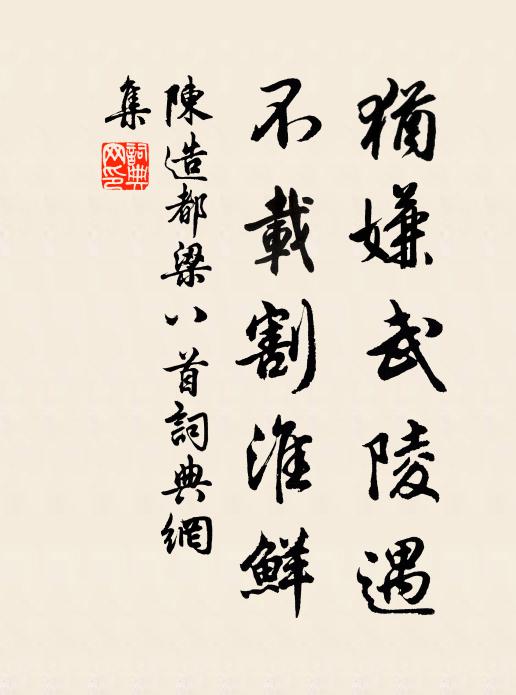 猶嫌武陵遇
不載割淮鮮
陳造都梁八首詞典網
集
詞典
网印